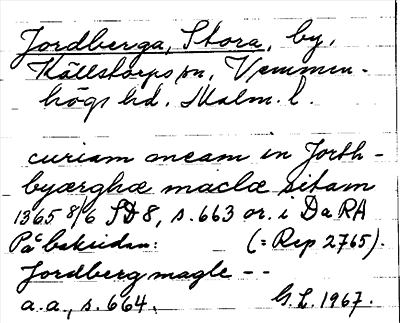 Jordberga, Stora, by,
Källstorps sn, Vemmen-
högs hd. Malm. l.
curiam meam in Jorth-
byærghæ maclæ sitam
1365 8/6 SD 8, s. 663 or. i DaRA
På baksidan: (= Rep 2765).
Jordberg magle --
a.a., s. 664. G.L. 1967.